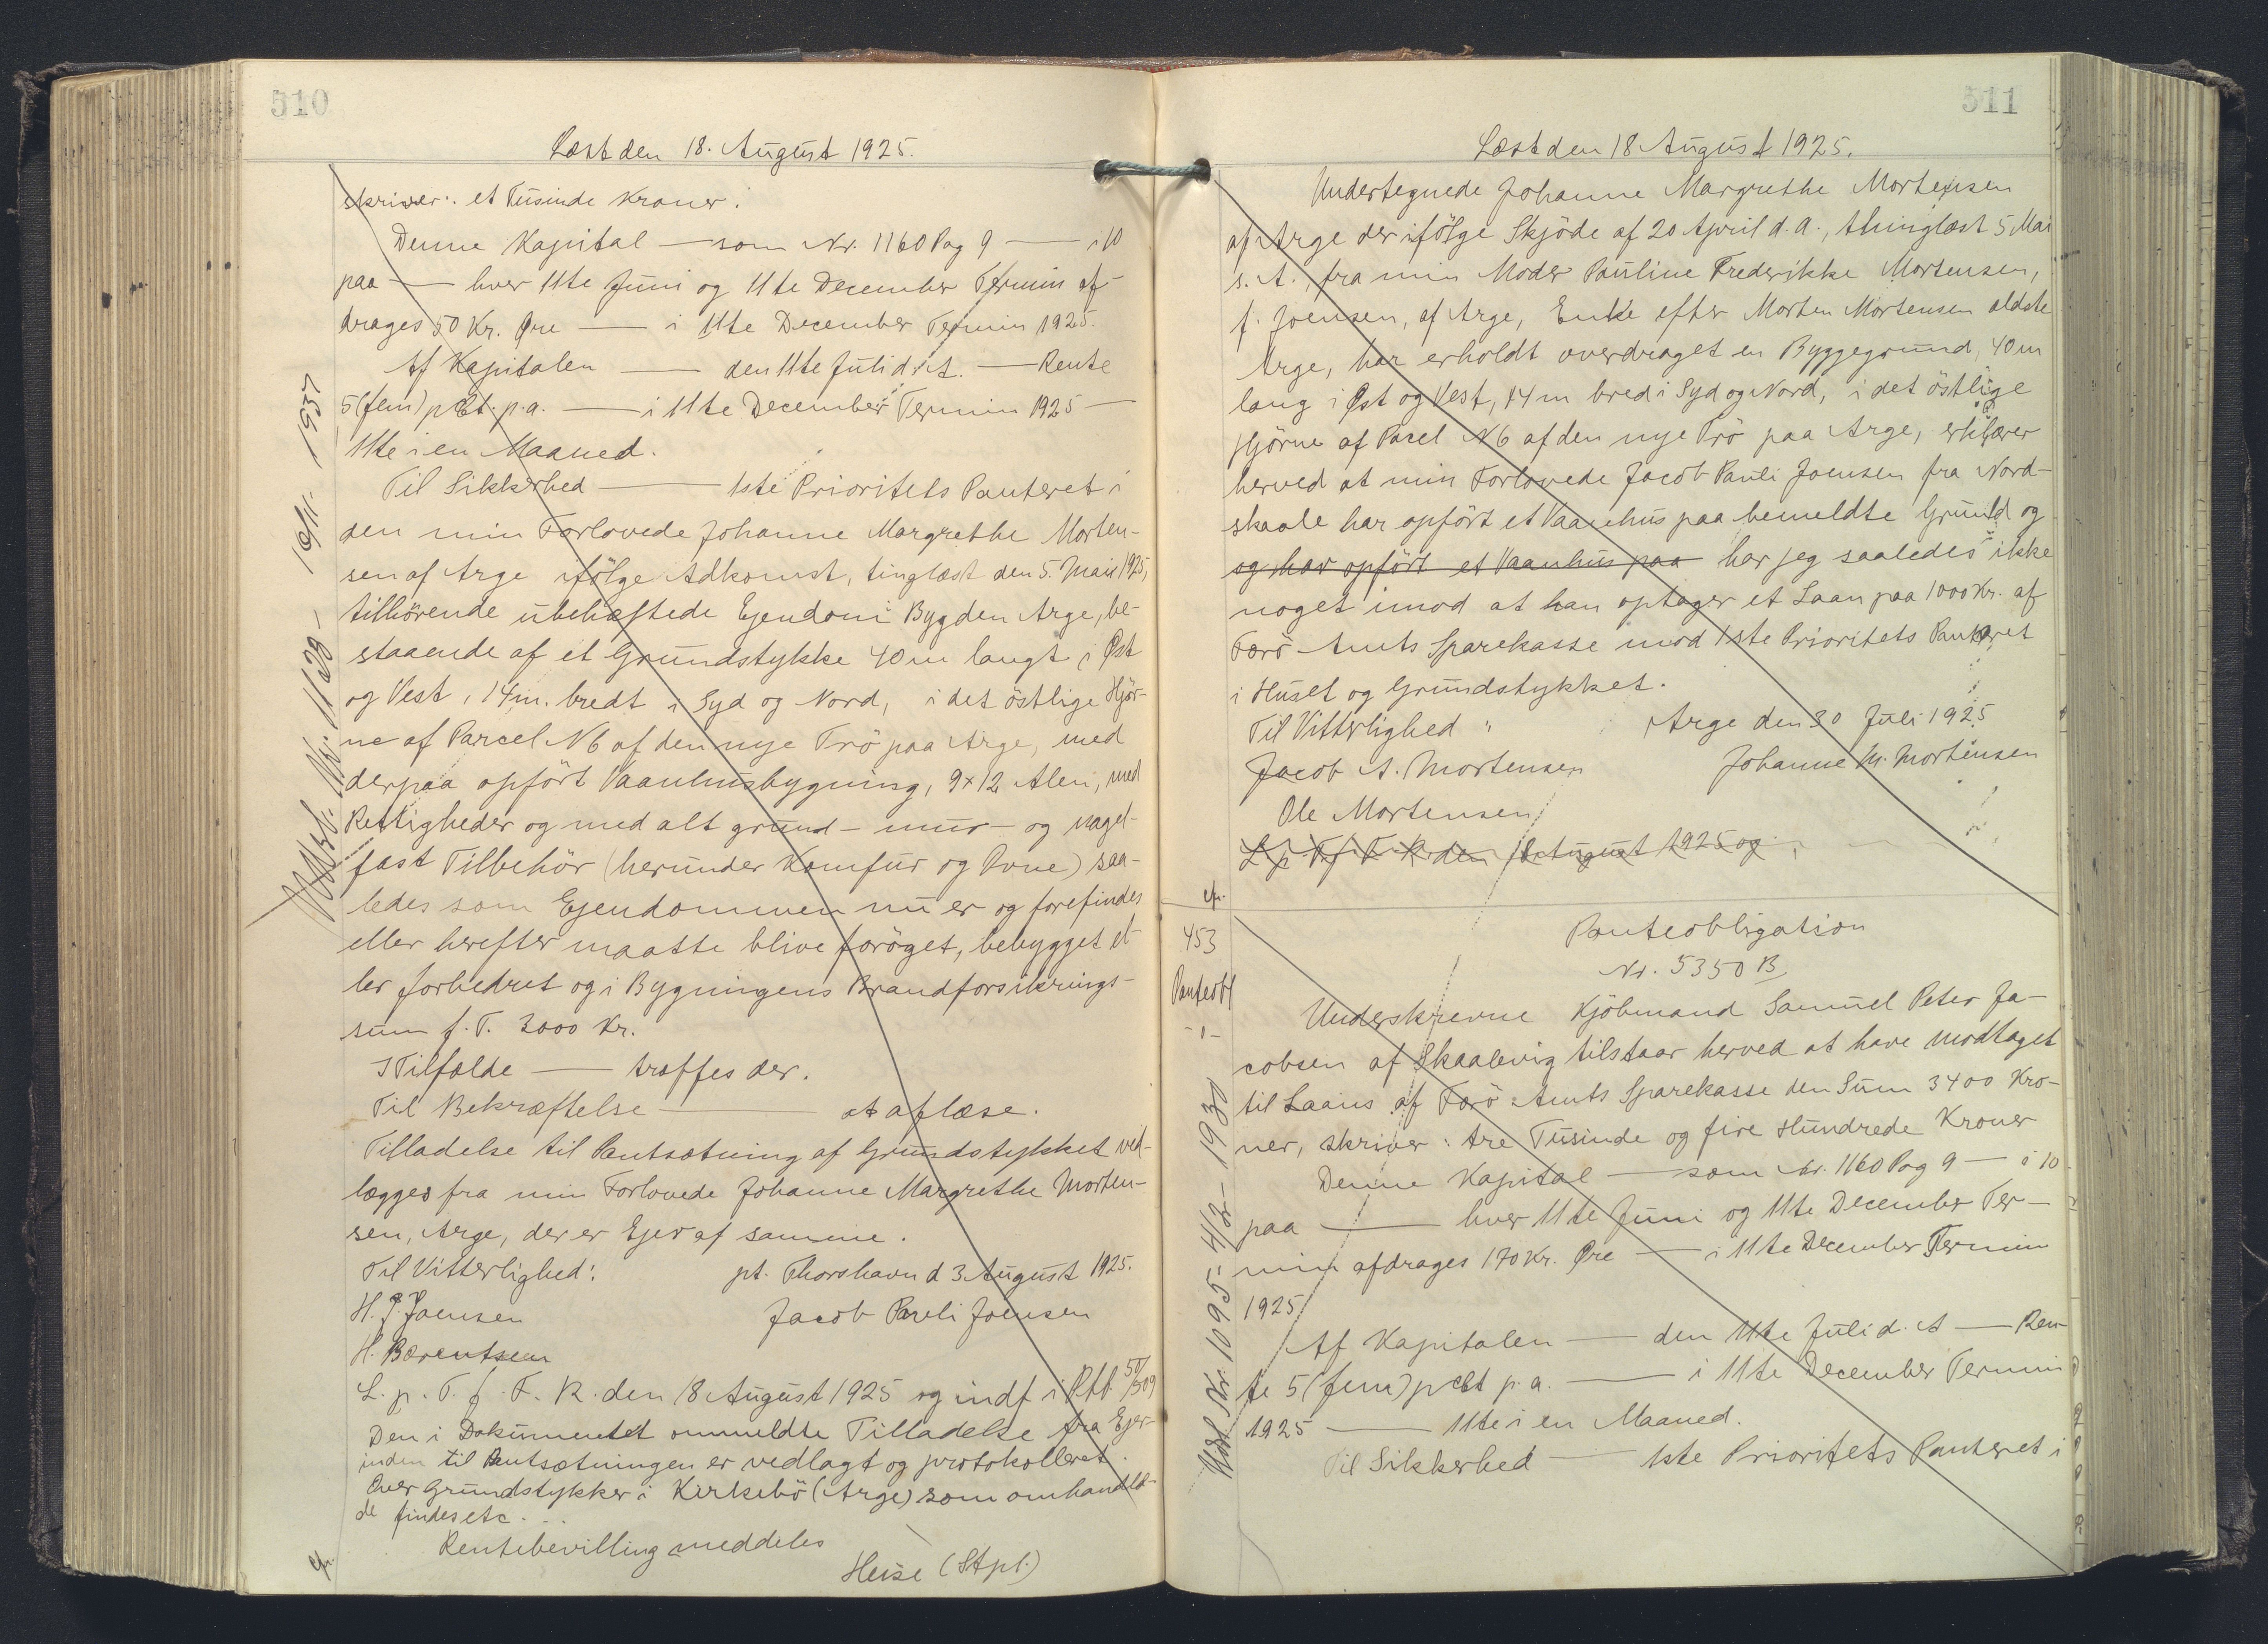 510
Læst den 18. August 1925.
skriver: et Tusinde Kroner.
Denne Kapital — som Nr. 1160 Pag 9 — i 10
paa — hver 11te Juni og 11te December Termin af-
drages 50 Kr. Øre — i 11te December Termin 1925.
Af Kapitalen — den 11te Juli d. A. — Rente
5 (fem) pCt. p.a. — i 11te December Termin 1925 —
11te i en Maaned.
Til Sikkerhed — 1ste Prioritets Panteret i
den min Forlovede Johanne Margrethe Morten-
sen af Arge ifölge Adkomst, tinglæst den 5. Mai 1925,
tilhörende ubehæftede Ejendom i Bygden Arge, be-
staaende af et Grundstykke 40 m langt i Øst
og Vest, 14 m. bredt i Syd og Nord, i det östlige Hjör-
ne af Parcel N 6 af den nye Trö paa Arge, med
derpaa opfört Vaanhusbygning, 9 x 12 Alen, med
Rettigheder og med alt grund- mur- og nagel-
fast Tilbehör (herunder Komfur og Ovne) saa-
ledes som Ejendommen nu er og forefindes
eller herefter maatte blive foröget, bebygget el-
ler forbedret og i Bygningens Brandforsikrings-
sum f. T. 3000 Kr.
I Tilfælde — træffes der.
Til Bekræftelse — at aflæse.
Tilladelse til Pantsætning af Grundstykket ved-
lægges fra min Forlovede Johanne Margrethe Morten-
sen, Arge, der er Ejer af samme.
Til Vitterlighed: pt. Thorshavn d 3 August 1925.
H. J. Joensen Jacob Pauli Joensen
H. Bærentsen
L. p. T. f. F. R. den 18 August 1925 og indf i Ptb 50/509
Den i Dokumentet ommeldte Tilladelse fra Ejer-
inden til Pantsætningen er vedlagt og protokolleret.
Over Grundstykker i Kirkebö (Arge) som omhandle-
de findes etc. ...
Rentebevilling meddeles
Heise (Stpl.)
cfr.
Udsl. Nr. 1128 - 19/11- 1937
511
Læst den 18 August 1925.
Undertegnede Johanne Margrethe Mortensen
af Arge der ifölge Skjöde af 20 April d. A., thinglæst 5 Mai
s. A., fra min Moder Pauline Frederikke Mortensen,
f. Joensen, af Arge, Enke efter Morten Mortensen ældste
Arge, har erholdt overdraget en Byggegrund, 40 m
lang i Øst og Vest, 14 m bred i Syd og Nord, i det östlige
Hjörne af Pacel N 6 af den nye Trö paa Arge, erklærer
herved at min Forlovede Jacob Pauli Joensen fra Nord-
skaale har opfört et Vaanhus paa bemeldte Grund og
og har opfört et Vaanhus paa har jeg saaledes ikke
noget imod at han optager et Laan paa 1000 Kr. af
Færö Amts Sparekasse mod 1ste Prioritets Panteret
i Huset og Grundstykket.
Til Vitterlighed " Arge den 30 Juli 1925
Jacob A. Mortensen Johanne M. Mortensen
Ole Mortensen
L. p. T. f. F. R. den 18 August 1925 og
cfr.
453
Panteobl
-1-
Panteobligation
Nr. 5350 B
Underskrevne Kjöbmand Samuel Peter Ja-
cobsen af Skaalevig tilstaar herved at have modtaget
til Laans af Færö Amts Sparekasse den Sum 3400 Kro-
ner, skriver: tre Tusinde og fire Hundrede Kroner
Denne Kapital — som Nr. 1160 Pag 9 — i 10
paa — hver 11te Juni og 11te December Ter-
min afdrages 170 Kr. Øre — i 11te December Termin
1925
Af Kapitalen — den 11te Juli d. A — Ren-
te 5 (fem) pCt p. a. — i 11te December Termin
1925 — 11te i en Maaned.
Til Sikkerhed — 1ste Prioritets Panteret i
Udsl. Nr. 1095- 4/2- 1930